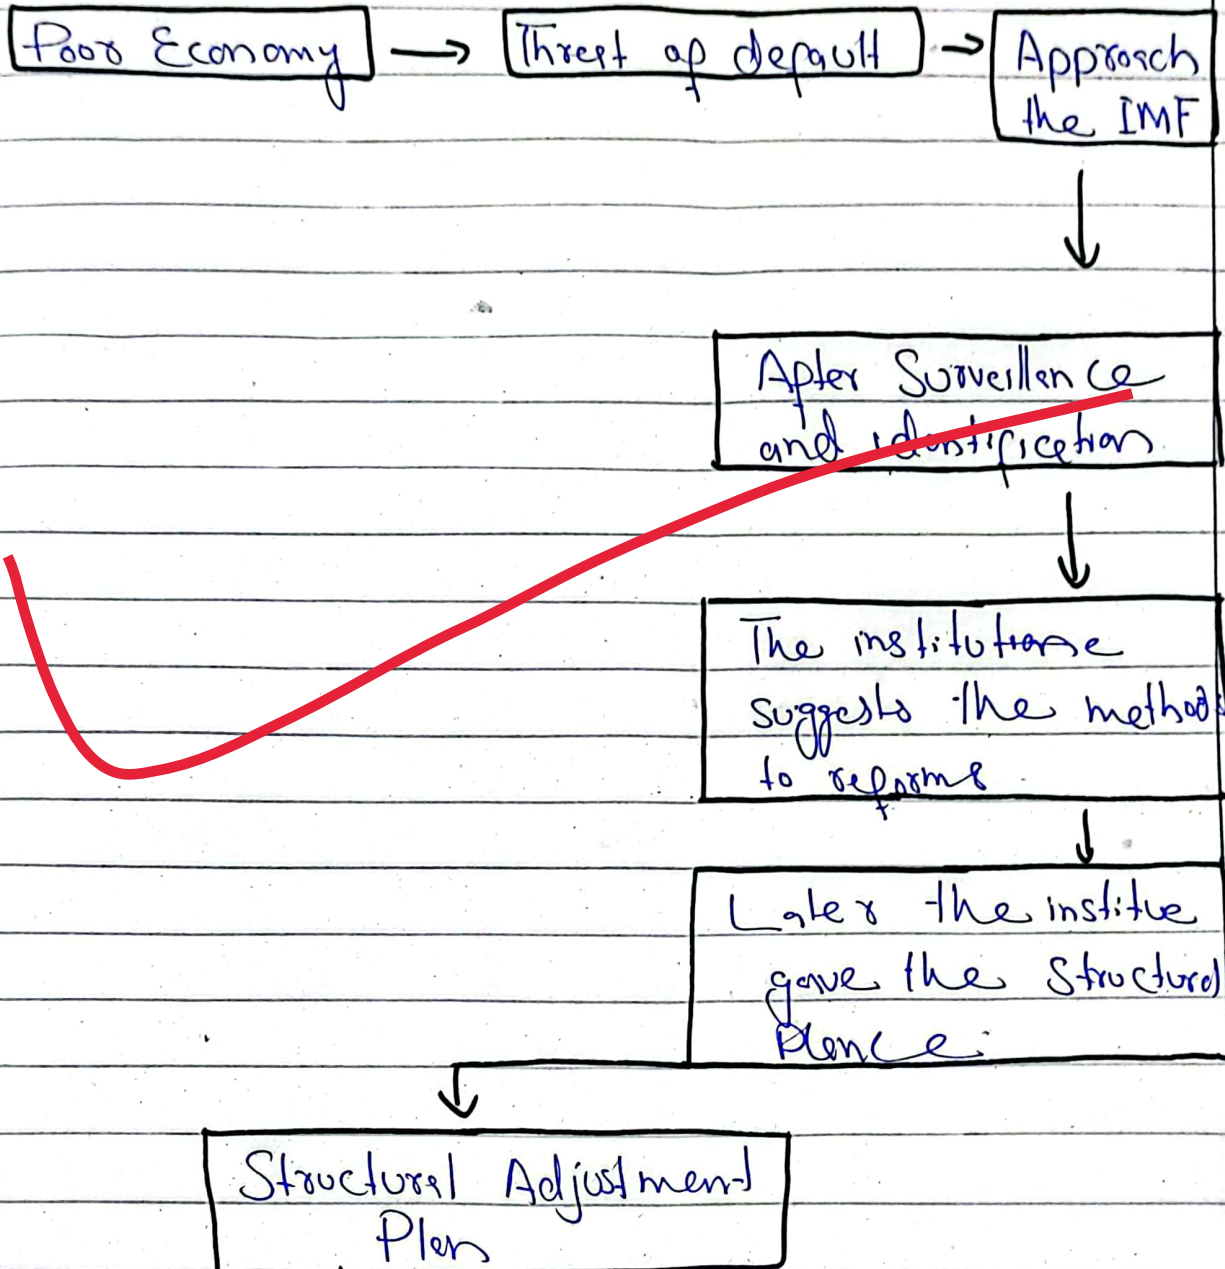 Poor Economy
Threat of default
Approach
the IMF
After Surveillence
and identification
The institutionse
suggests the methods
to reforms
Later the institue
gave the Structural
Plance.
Structural Adjustment
Plan